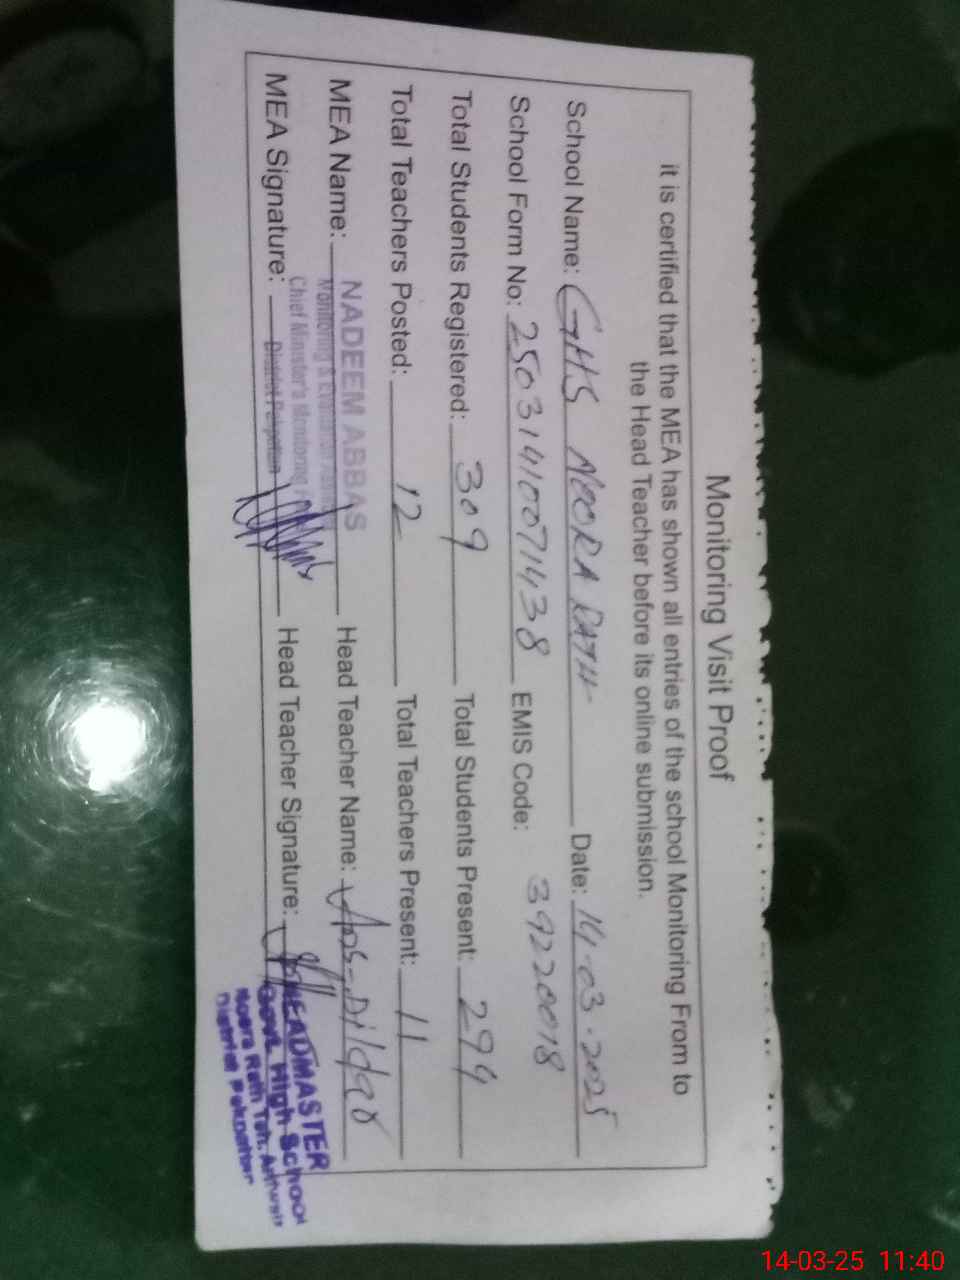 Monitoring Visit Proof
it is certified that the MEA has shown all entries of the school Monitoring From to
the Head Teacher before its online submission.
School Name: GHS NOORA RATH Date: 14-03-2025
School Form No: 25031410071438 EMIS Code: 39220018
Total Students Registered: 309 Total Students Present: 299
Total Teachers Posted: 12 Total Teachers Present: 11
MEA Name: NADEEM ABBAS Head Teacher Name: Dildar
Monitoring & Evaluation
Chief Minister's Monitoring
District Pakpattan
MEA Signature: Head Teacher Signature:
HEADMASTER
Govt. High School
Noora Rath Teh. Arifwala
District Pakpattan
14-03-25 11:40